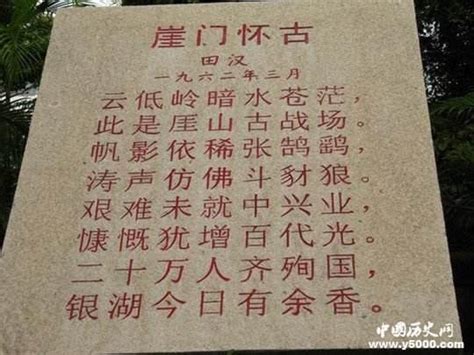 崖门怀古
田汉
一九六二年三月
云低岭暗水苍茫，
此是厓山古战场。
帆影依稀张鹄鹞，
涛声仿佛斗豺狼。
艰难未就中兴业，
慷慨犹增百代光。
二十万人齐殉国，
银湖今日有余香。
中国历史网
www.y5000.com